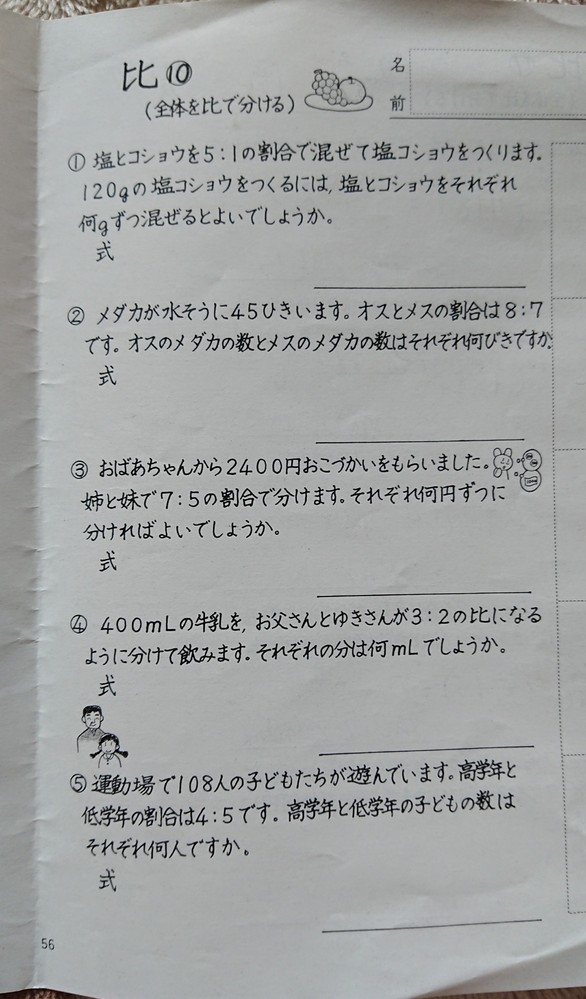 比⑩
(全体を比で分ける)
名
前
① 塩とコショウを5:1の割合で混ぜて塩コショウをつくります。
120gの塩コショウをつくるには,塩とコショウをそれぞれ
何gずつ混ぜるとよいでしょうか。
式
② メダカが水そうに45ひきいます。オスとメスの割合は8:7
です。オスのメダカの数とメスのメダカの数はそれぞれ何びきですか。
式
③ おばあちゃんから2400円おこづかいをもらいました。
姉と妹で7:5の割合で分けます。それぞれ何円ずつに
分ければよいでしょうか。
式
④ 400mLの牛乳を,お父さんとゆきさんが3:2の比になる
ように分けて飲みます。それぞれの分は何mLでしょうか。
式
⑤ 運動場で108人の子どもたちが遊んでいます。高学年と
低学年の割合は4:5です。高学年と低学年の子どもの数は
それぞれ何人ですか。
式
56